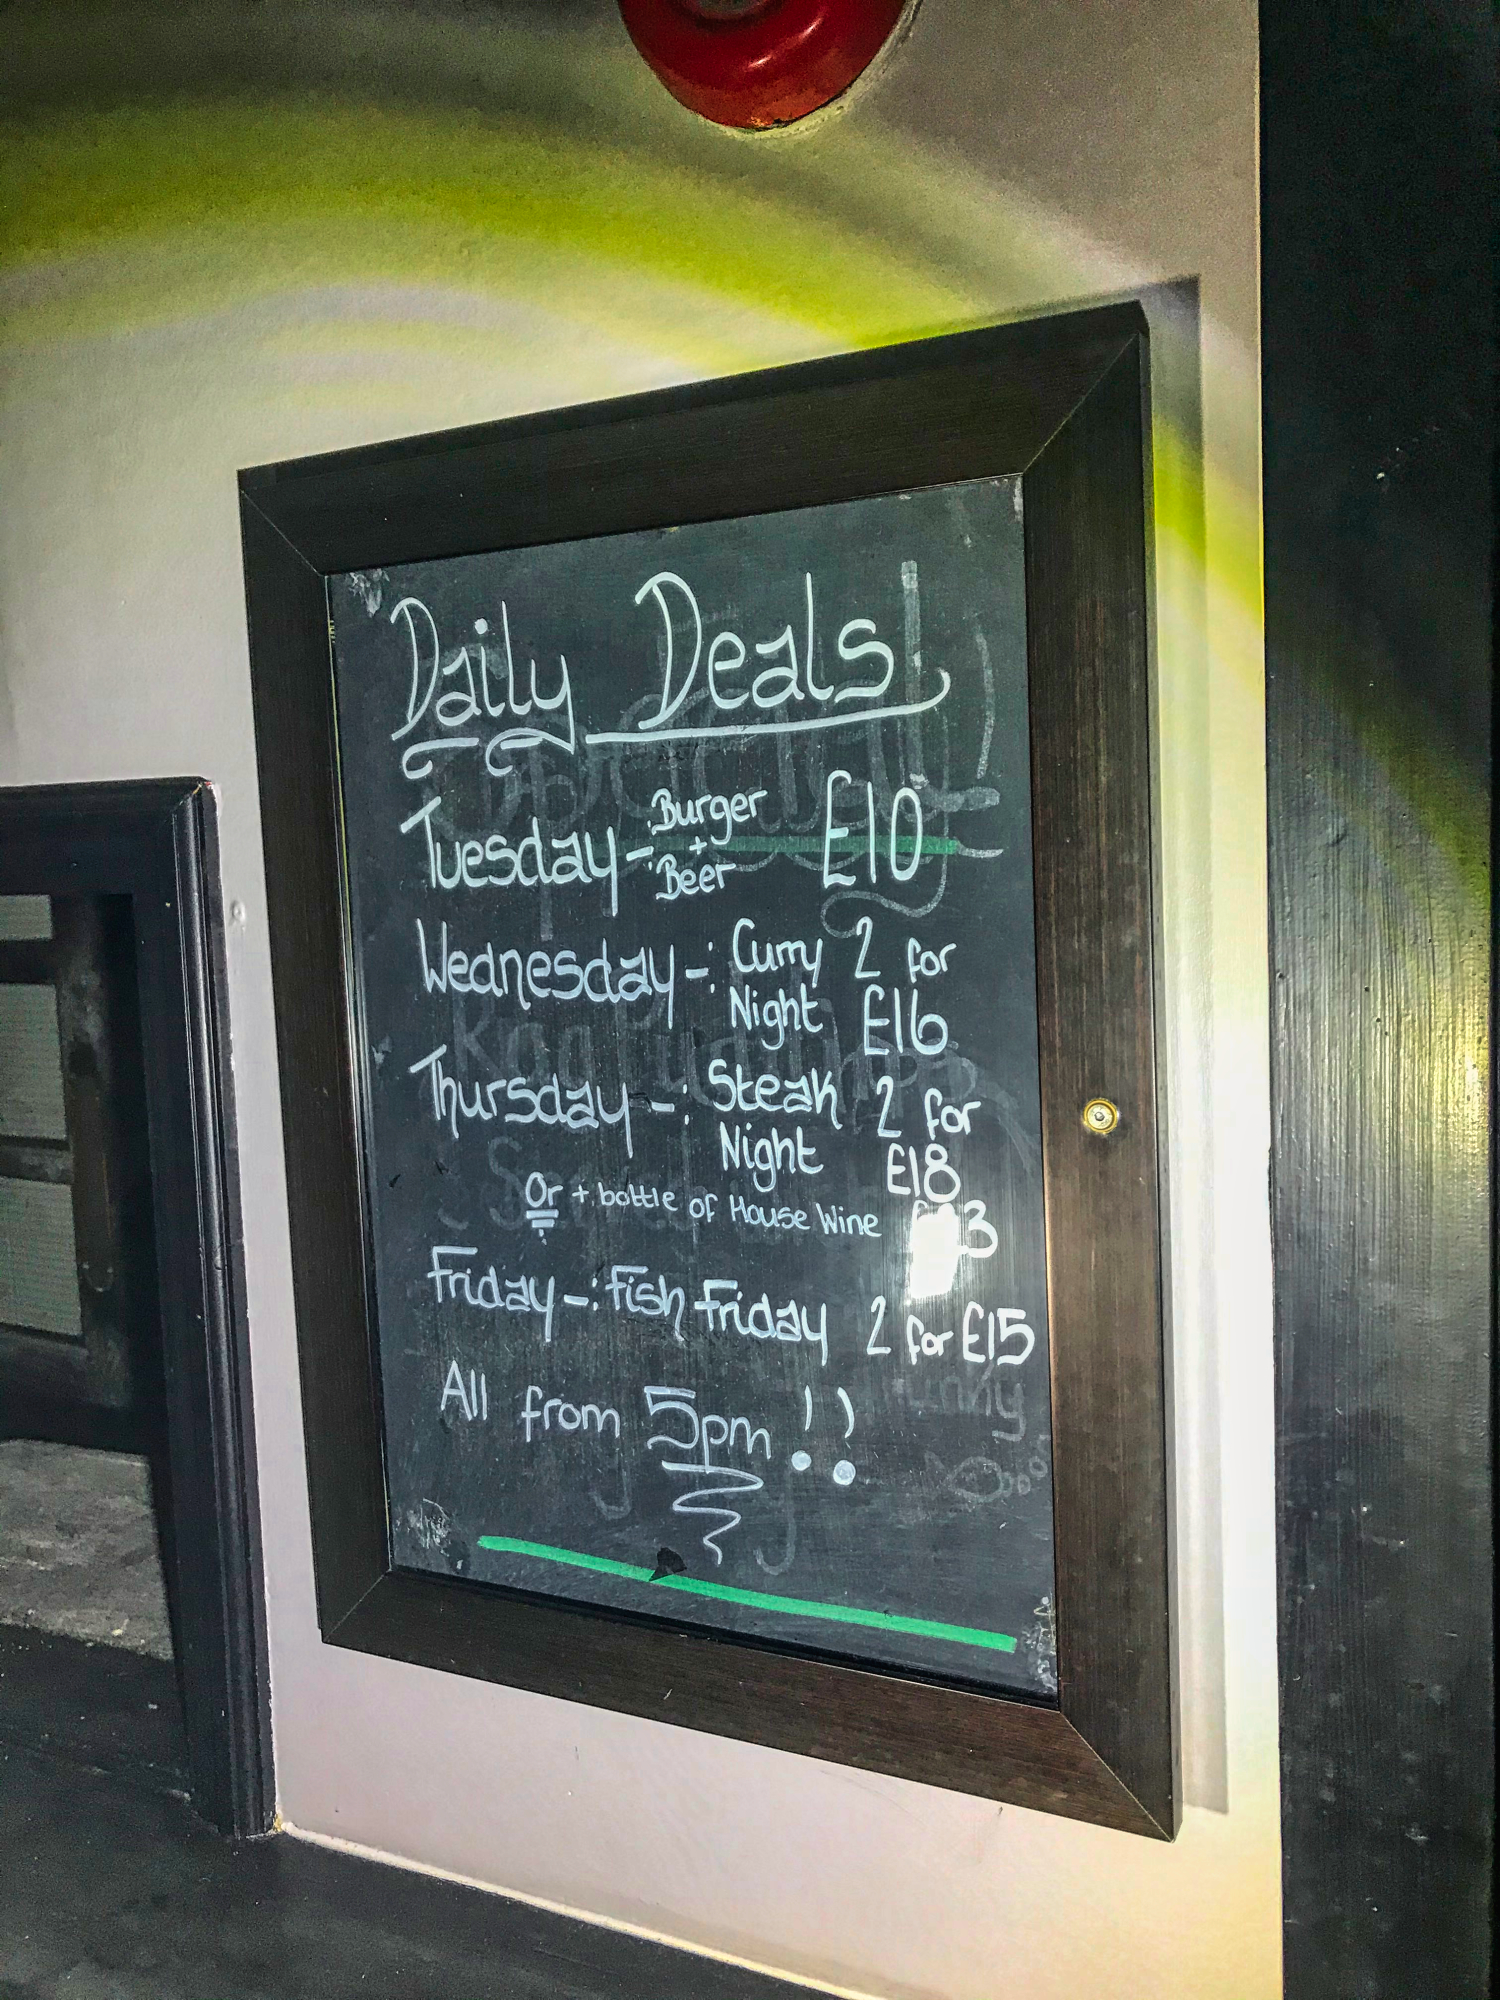 Daily Deals
Tuesday -: Burger + Beer £10
Wednesday -: Curry Night 2 for £16
Thursday -: Steak Night 2 for £18
Or + bottle of House Wine
Friday -: Fish Friday 2 for £15
All from 5pm !!